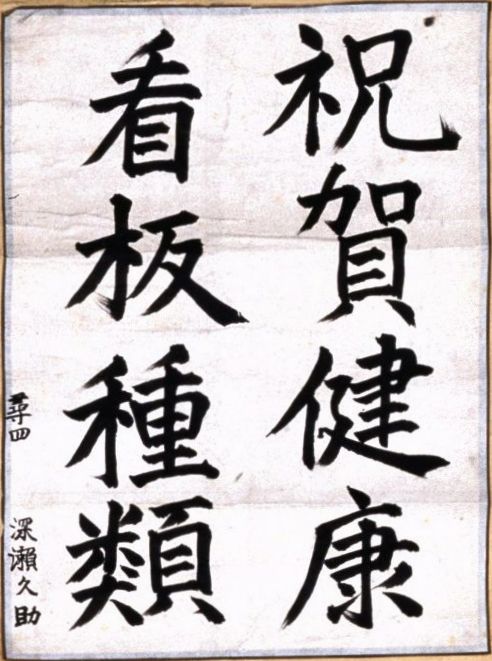 祝賀健康
看板種類
尋四
深瀬久助